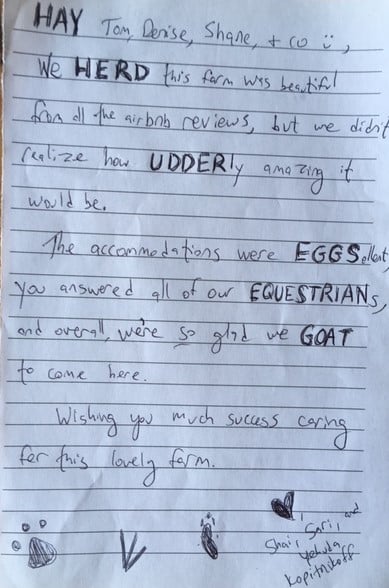 HAY Tom, Denise, Shane, + co ü,
We HERD this farm was beautiful
from all the airbnb reviews, but we didn't
realize how UDDERly amazing it
would be.
The accommodations were EGGSellent,
you answered all of our EQUESTRIANs,
and overall, we're so glad we GOAT
to come here.
Wishing you much success caring
for this lovely farm.
Shai, Sarit, and
Yehuda
Kopitnikoff